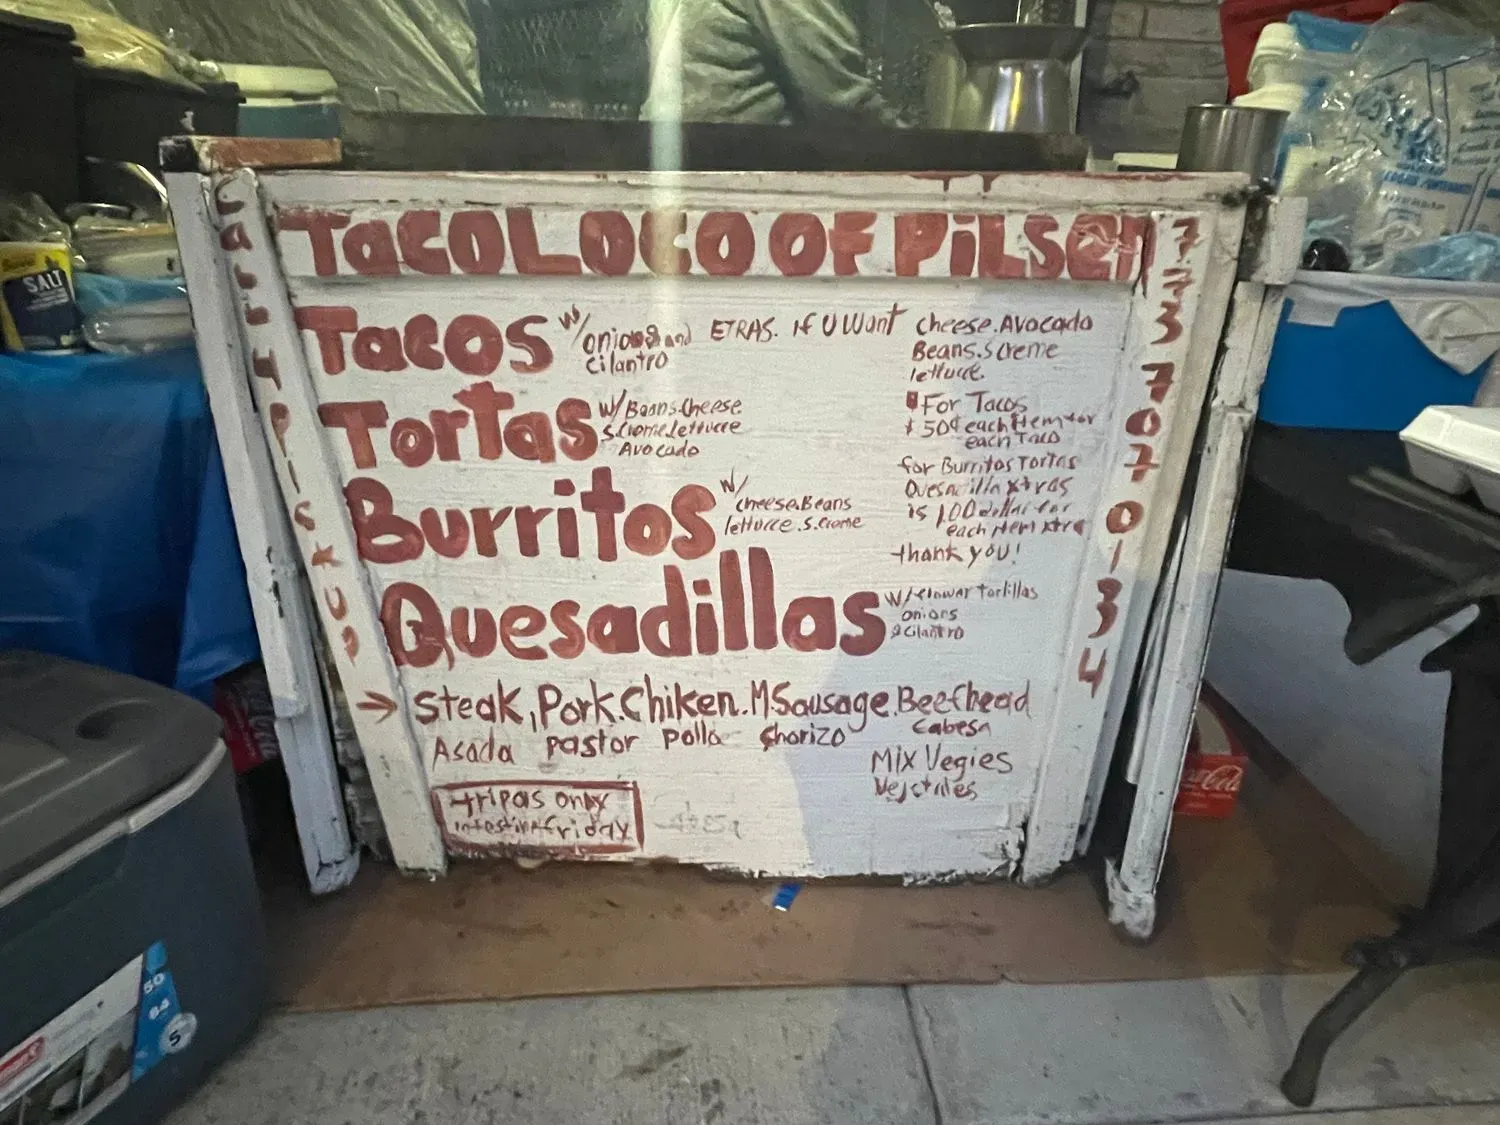 TacoLoco OF PilSEN
Tacos w/onions and cilantro
ETRAS. If U Want cheese. Avocado
Beans. S creme
lettuce.
For Tacos
$ 50¢ each item for
each Taco
Tortas w/ Beans. Cheese
S. Creme. Lettuce
Avocado
for Burritos Tortas
Quesadilla xtras
is 1,00 dollar for
each item xtra
thank you!
Burritos w/
cheese. Beans
lettuce. S. Creme
Quesadillas w/ flower Tortillas
onions
& Cilantro
→ Steak, Pork. Chiken. M. Sausage. Beefhead
Asada pastor pollo Chorizo Cabesa
Mix Vegies
tripas only
intestine friday
773 707 0134
SALT
50
84
5
Coca-Cola